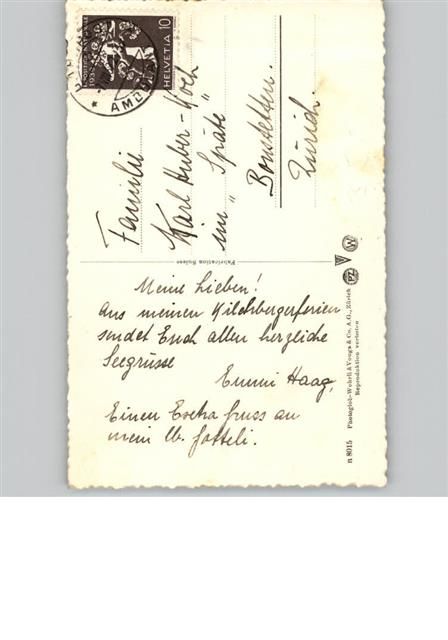 HELVETIA 10
1939
AM
Familie
Karl Huber-Koch
im "Späte"
Bonstetten.
Zürich.
Fabrication Suisse
Meine Lieben!
Aus meinen Kilchbergerferien
sendet Euch allen herzliche
Seegrüsse
Emmi Haag,
Einen Extra gruss an
mein lb. Gotteli.
n 8015 Photoglob-Wehrli & Vouga & Co. A.G., Zürich
Reproduktion verboten
PZ
W